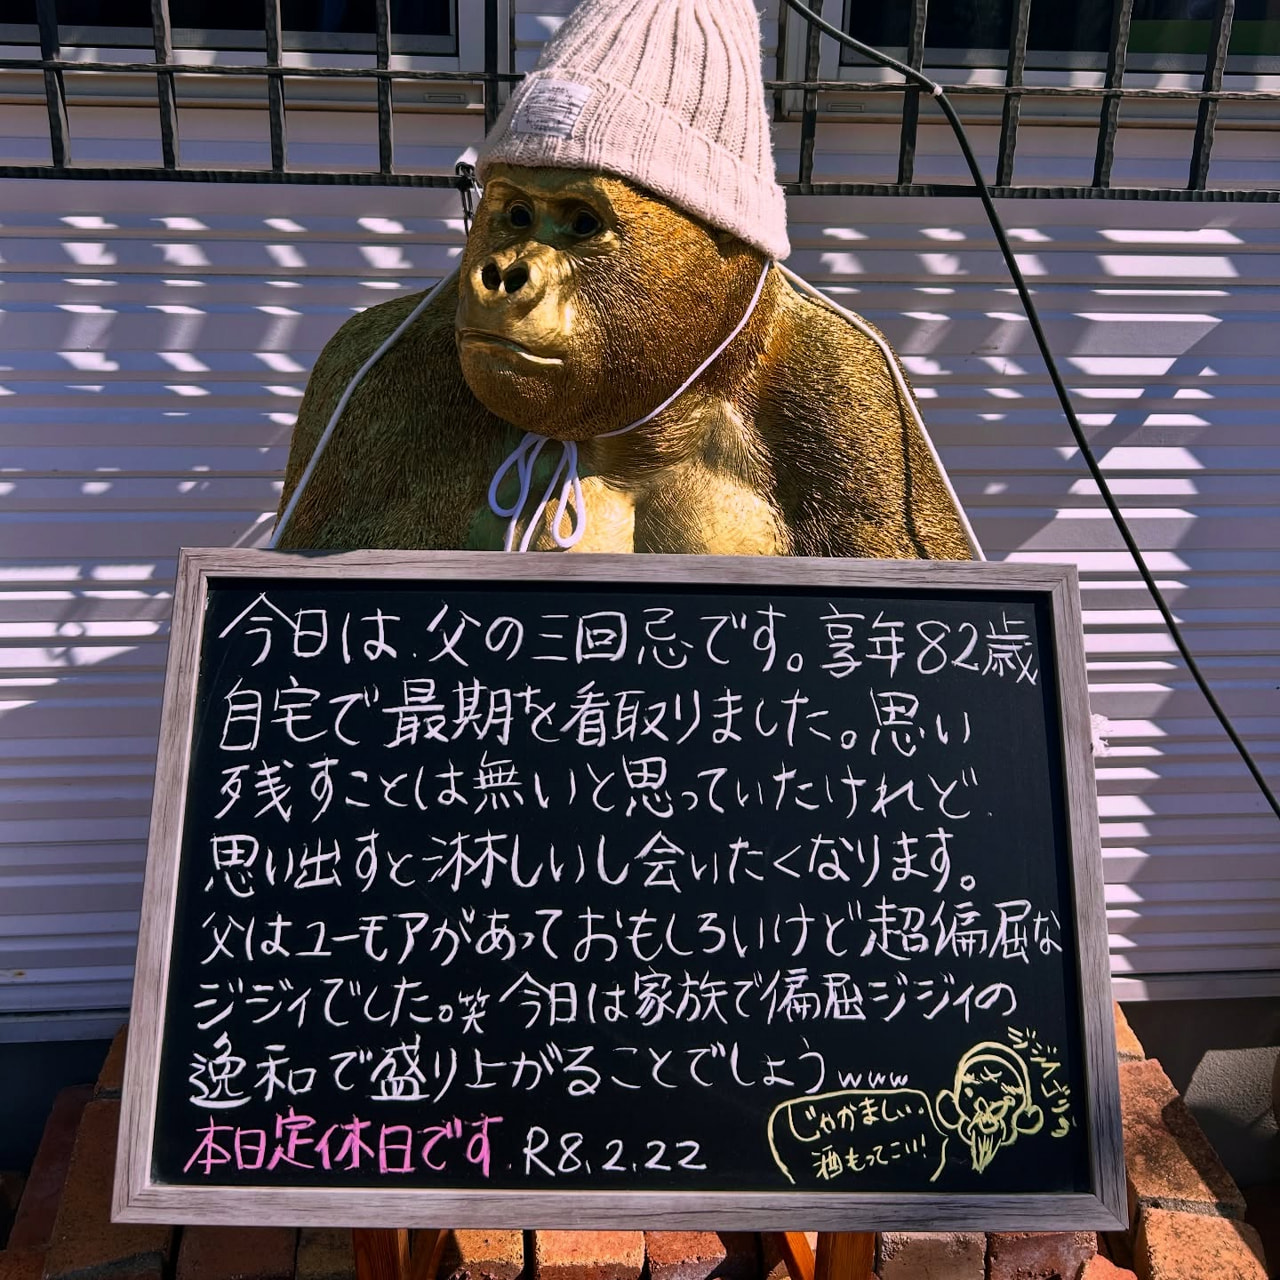 今日は、父の三回忌です。享年82歳
自宅で最期を看取りました。思い
残すことは無いと思っていたけれど、
思い出すと淋しいし会いたくなります。
父はユーモアがあっておもしろいけど超偏屈な
ジジイでした。笑 今日は家族で偏屈ジジイの
逸和で盛り上がることでしょうwww
本日定休日です。R8.2.22
じゃかましい、
酒もってこい!!